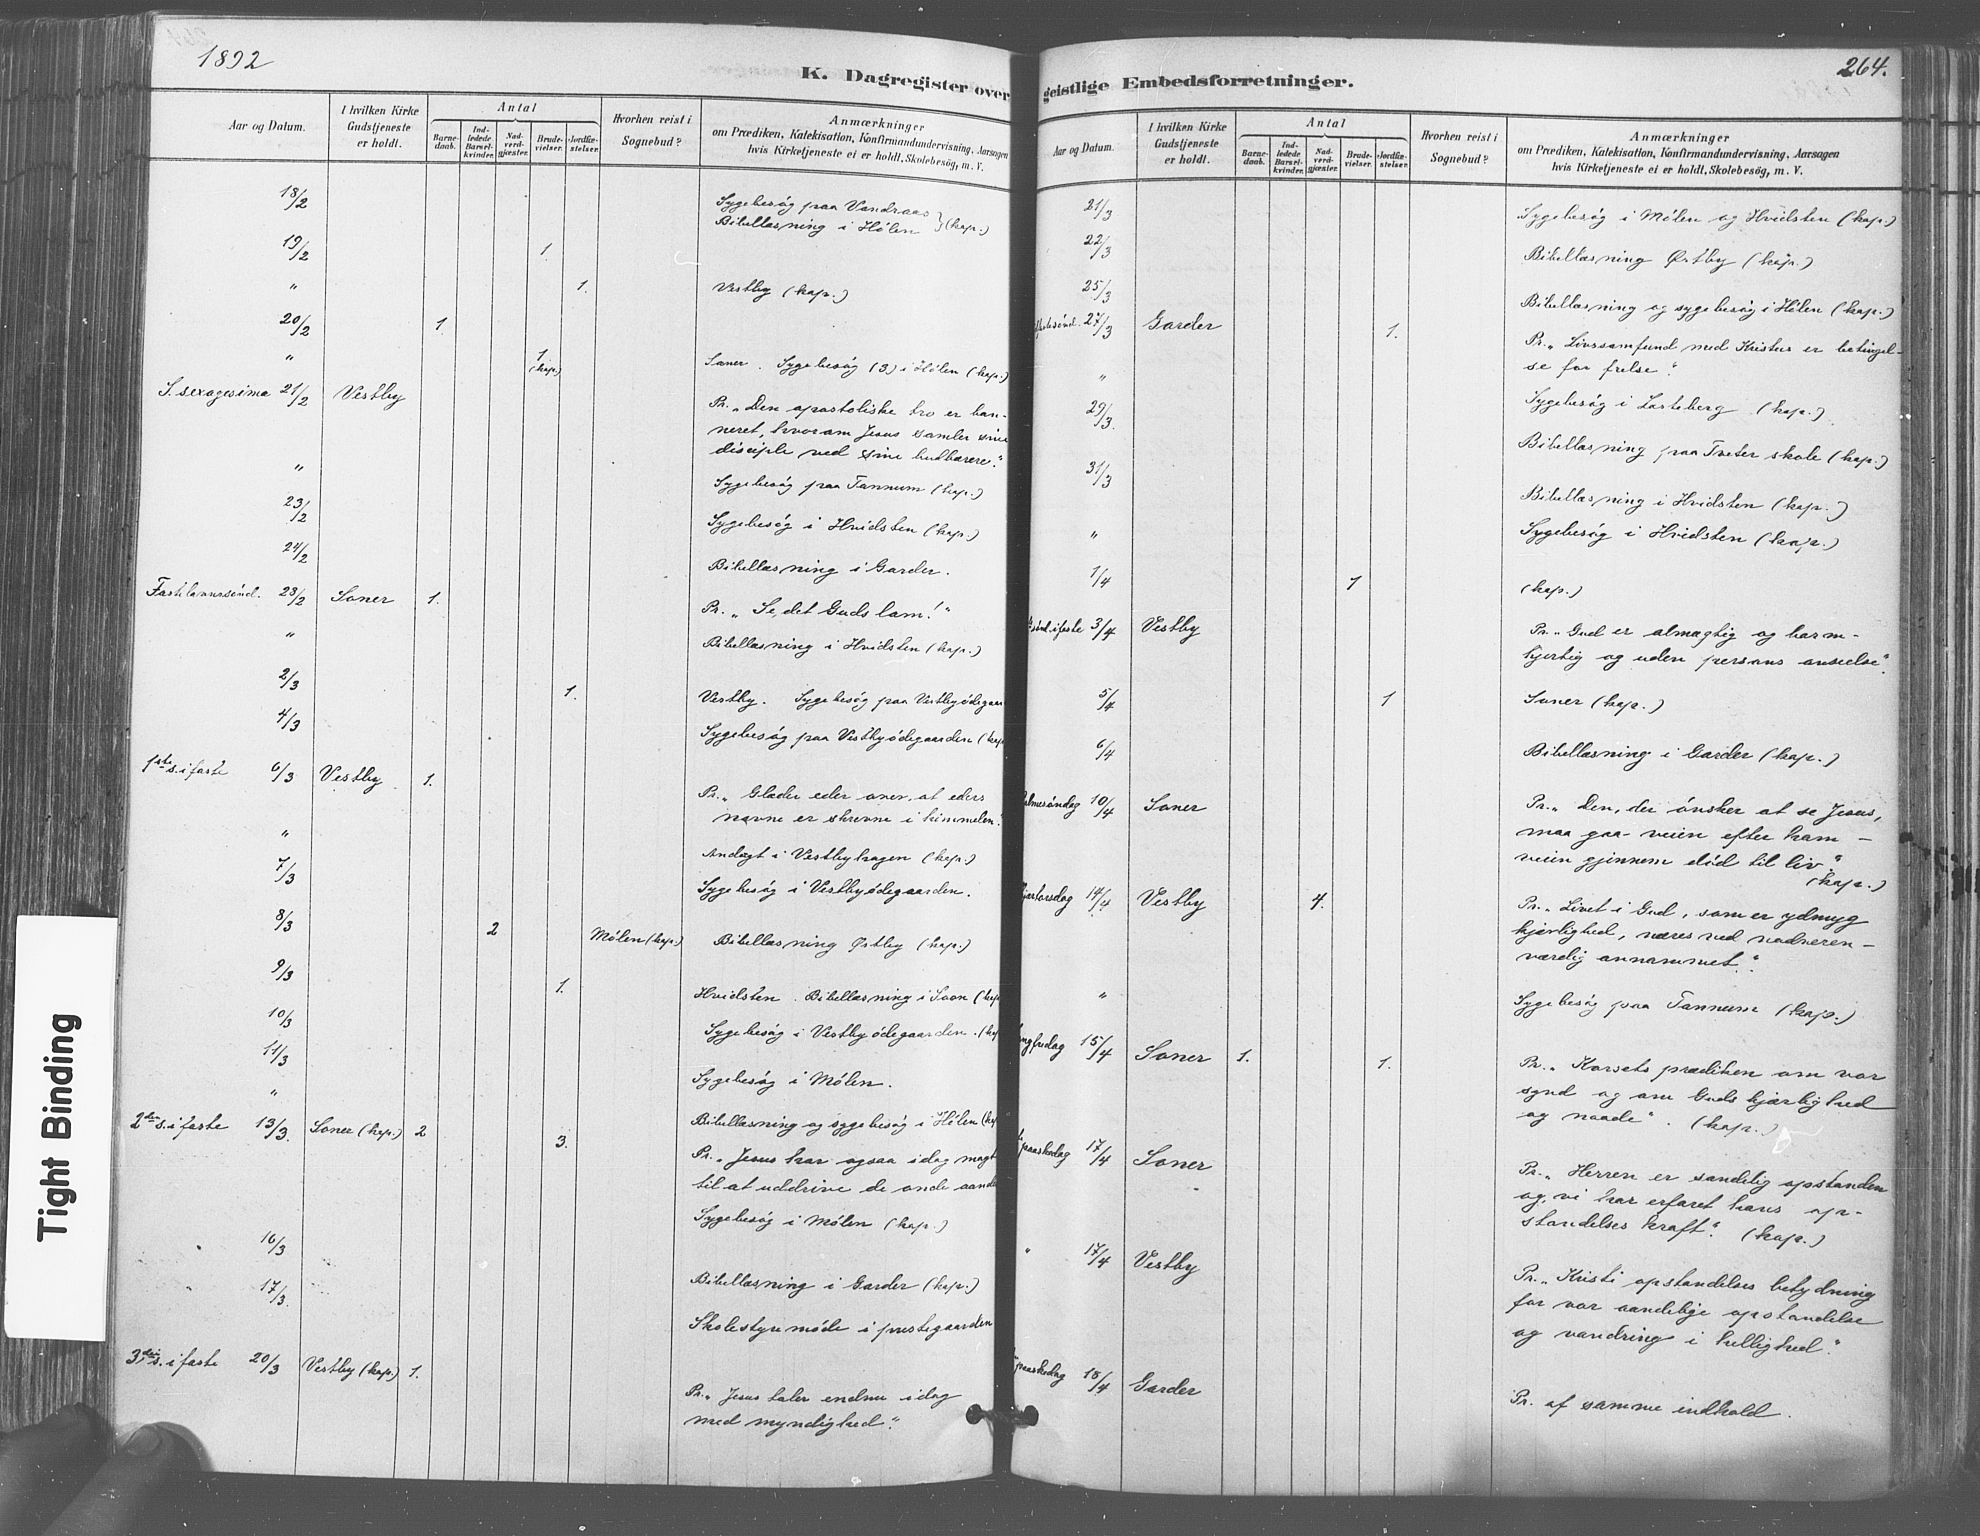 1892
K. Dagregister over
Aar og Datum.
I hvilken Kirke Gudstjeneste er holdt.
Antal
Barnedaab.
Indledede Barselkvinder.
Nadverdgjæster.
Brudevielser.
Jordfæstelser.
Hvorhen reist i Sognebud?
Anmærkninger
om Prædiken, Katekisation, Konfirmandundervisning, Aarsagen
hvis Kirketjeneste ei er holdt, Skolebesøg, m. V.
18/2 Sygebesøg paa Vandraas
Bibellæsning i Hølen } (kap.)
19/2 1.
" 1. Vestby (kap.)
20/2 1.
" 1. (kap) Soner. Sygebesøg (3) i Hølen (kap.)
S. sexagesima 21/2 Vestby
Pr. „Den apostoliske tro er ban-
neret, hvorom Jesus samler sine
disciple ved sine budbærere."
" Sygebesøg paa Tannum (kap.)
23/2 Sygebesøg i Hvidsten (kap.)
24/2 Bibellæsning i Garder.
Fastelavnssönd. 23/2 Soner 1. Pr. „Se, det Guds lam!"
" Bibellæsning i Hvidsten (kap.)
2/3 1. Vestby. Sygebesøg paa Vestbyødegaar
4/3 Sygebesøg paa Vestbyødegaarden (kap
1ste s. i faste 6/3 Vestby 1.
Pr. „Glæder eder over, at eders
navne er skrevne i himmelen."
" Andagt i Vestbyhagen (kap.)
7/3 Sygebesøg i Vestbyødegaarden.
8/3 2 Mølen (kap.) Bibellæsning Østby (kap.)
9/3 1. Hvidsten. Bibellæsning i Soon (kap
10/3 Sygebesøg i Vestbyødegaarden. (kap
11/3 Sygebesøg i Mølen.
" Bibellæsning og sygebesøg i Hølen (kap
2den s. i faste 13/3. Soner (kap.) 2 3.
Pr. „Jesus har ogsaa idag magt
til at uddrive de onde aander
Sygebesøg i Mølen (kap.)
16/3 Bibellæsning i Garder (kap.)
17/3. Skolestyremøde i prestegaarden
3die s. i faste 20/3 Vestby (kap.) 1.
Pr. „Jesus taler endnu idag
med myndighed."
geistlige Embedsforretninger.
264.
Aar og Datum.
I hvilken Kirke Gudstjeneste er holdt.
Antal
Barnedaab.
Indledede Barselkvinder.
Nadverdgjæster.
Brudevielser.
Jordfæstelser.
Hvorhen reist i Sognebud?
Anmærkninger
om Prædiken, Katekisation, Konfirmandundervisning, Aarsagen
hvis Kirketjeneste ei er holdt, Skolebesøg, m. V.
21/3 Sygebesøg i Mølen og Hvidsten (kap.)
22/3 Bibellæsning Østby (kap.)
25/3 Bibellæsning og sygebesøg i Hølen (kap.)
27/3 Garder 1.
Pr. „Livssamfund med Kristus er betingel-
se for frelse."
" Sygebesøg i (kap.)
29/3. Bibellæsning paa Tveter skole (kap.)
31/3 Bibellæsning i Hvidsten (kap.)
" Sygebesøg i Hvidsten (kap.)
1/4 1 (kap.)
sönd. i faste 3/4 Vestby
Pr. „Gud er almægtig og barm-
hjertig og uden persons anseelse".
5/4 1 Soner (kap.)
6/4 Bibellæsning i Garder (kap.)
almesöndag 10/4 Soner
Pr. „Den, der ønsker at se Jesus,
maa gaa veien efter ham –
veien gjennem död til liv."
(kap.)
jærtorsdag 14/4 Vestby 4.
Pr. „Livet i Gud, som er ydmyg
kjærlighed, næres ved nadveren –
værdig annammet."
" Sygebesøg paa Tannum (kap.)
ngfredag 15/4 Soner 1. 1.
Pr. „Korsets prædiken om vor
synd og om Guds kjærlighed
og naade". (kap.)
paaskedag 17/4 Soner
Pr. „Herren er sandelig opstanden
og vi har erfaret hans op-
standelses kraft." (kap.)
" 17/4 Vestby
Pr. „Kristi opstandelses betydning
for vor aandelige opstandelse
og vandring i hellighed."
paaskedag 18/4 Garder
Pr. af samme indhold.
Tight Binding